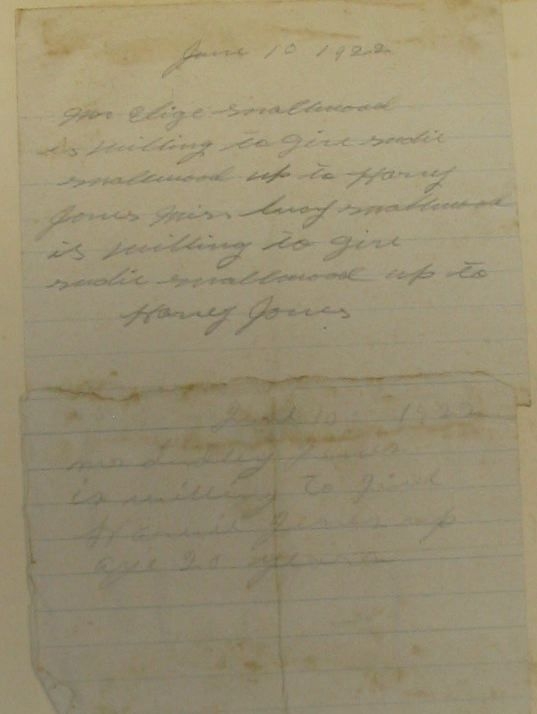 June 10 1922
Mr Elige Smallwood
is willing to give sudie
smallwood up to Harvey
Jones Miss lucy smallwood
is willing to give
sudie smallwood up to
Harvey Jones
June 10 1922
mr dudley Jones
is willing to give
Jones up
age 20 years